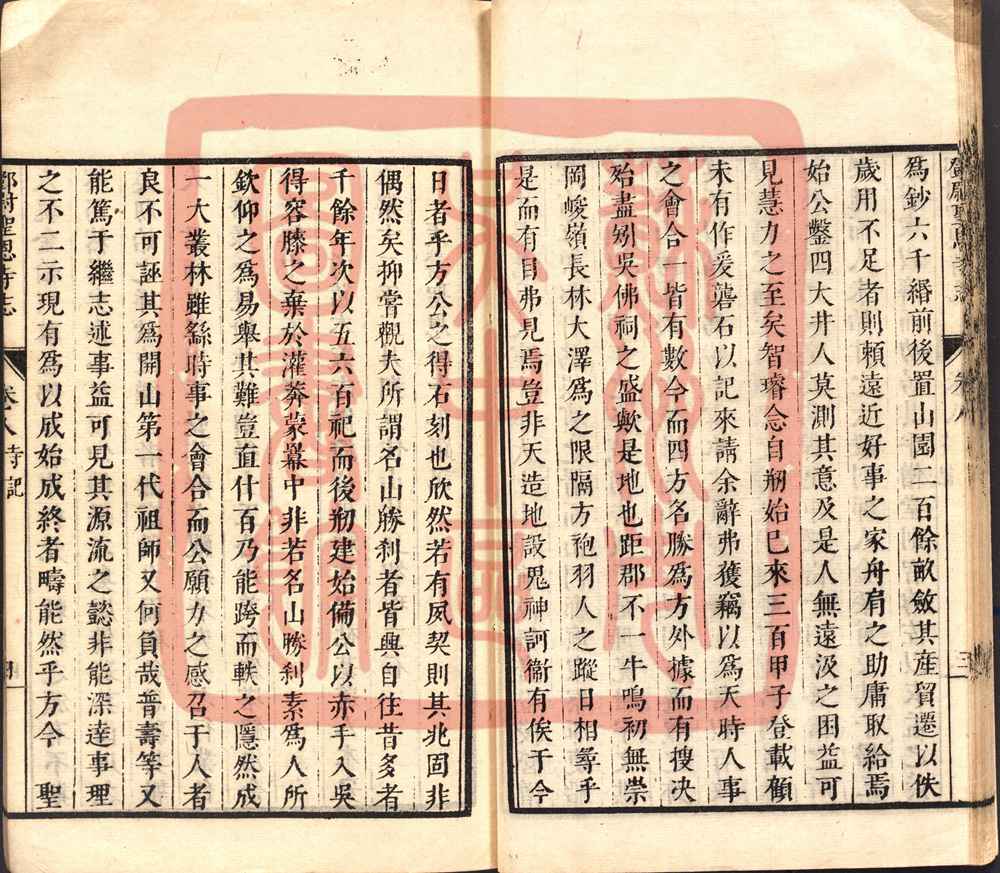 爲鈔六千緡前後置山園二百餘畝斂其產貿遷以佚
歲用不足者則賴遠近好事之家舟肩之助庸取給焉
始公鑿四大井人莫測其意及是人無遠汲之困益可
見慧力之至矣智璿念自剏始巳來三百甲子登載顧
未有作爰礱石以記來請余辭弗獲竊以爲天時人事
之會合一皆有數今而四方名勝爲方外據而有搜决
殆盡矧吳佛祠之盛歟是地也距郡不一牛鳴初無崇
岡峻嶺長林大澤爲之限隔方袍羽人之蹤日相尋乎
是而有目弗見焉豈非天造地設鬼神訶衞有俟于今
日者乎方公之得石刻也欣然若有夙契則其兆固非
偶然矣抑嘗觀夫所謂名山勝刹者皆興自往昔多者
千餘年次以五六百祀而後剏建始備公以赤手入吳
得容膝之棄於灌莽蒙翳中非若名山勝刹素爲人所
欽仰之爲易舉其難豈直什百乃能跨而軼之隱然成
一大叢林雖繇時事之會合而公願力之感召于人者
良不可誣其爲開山第一代祖師又何負哉普壽等又
能篤于繼志述事益可見其源流之懿非能深達事理
之不二示現有爲以成始成終者疇能然乎方今 聖
鄧尉聖恩寺志 卷之八 寺記